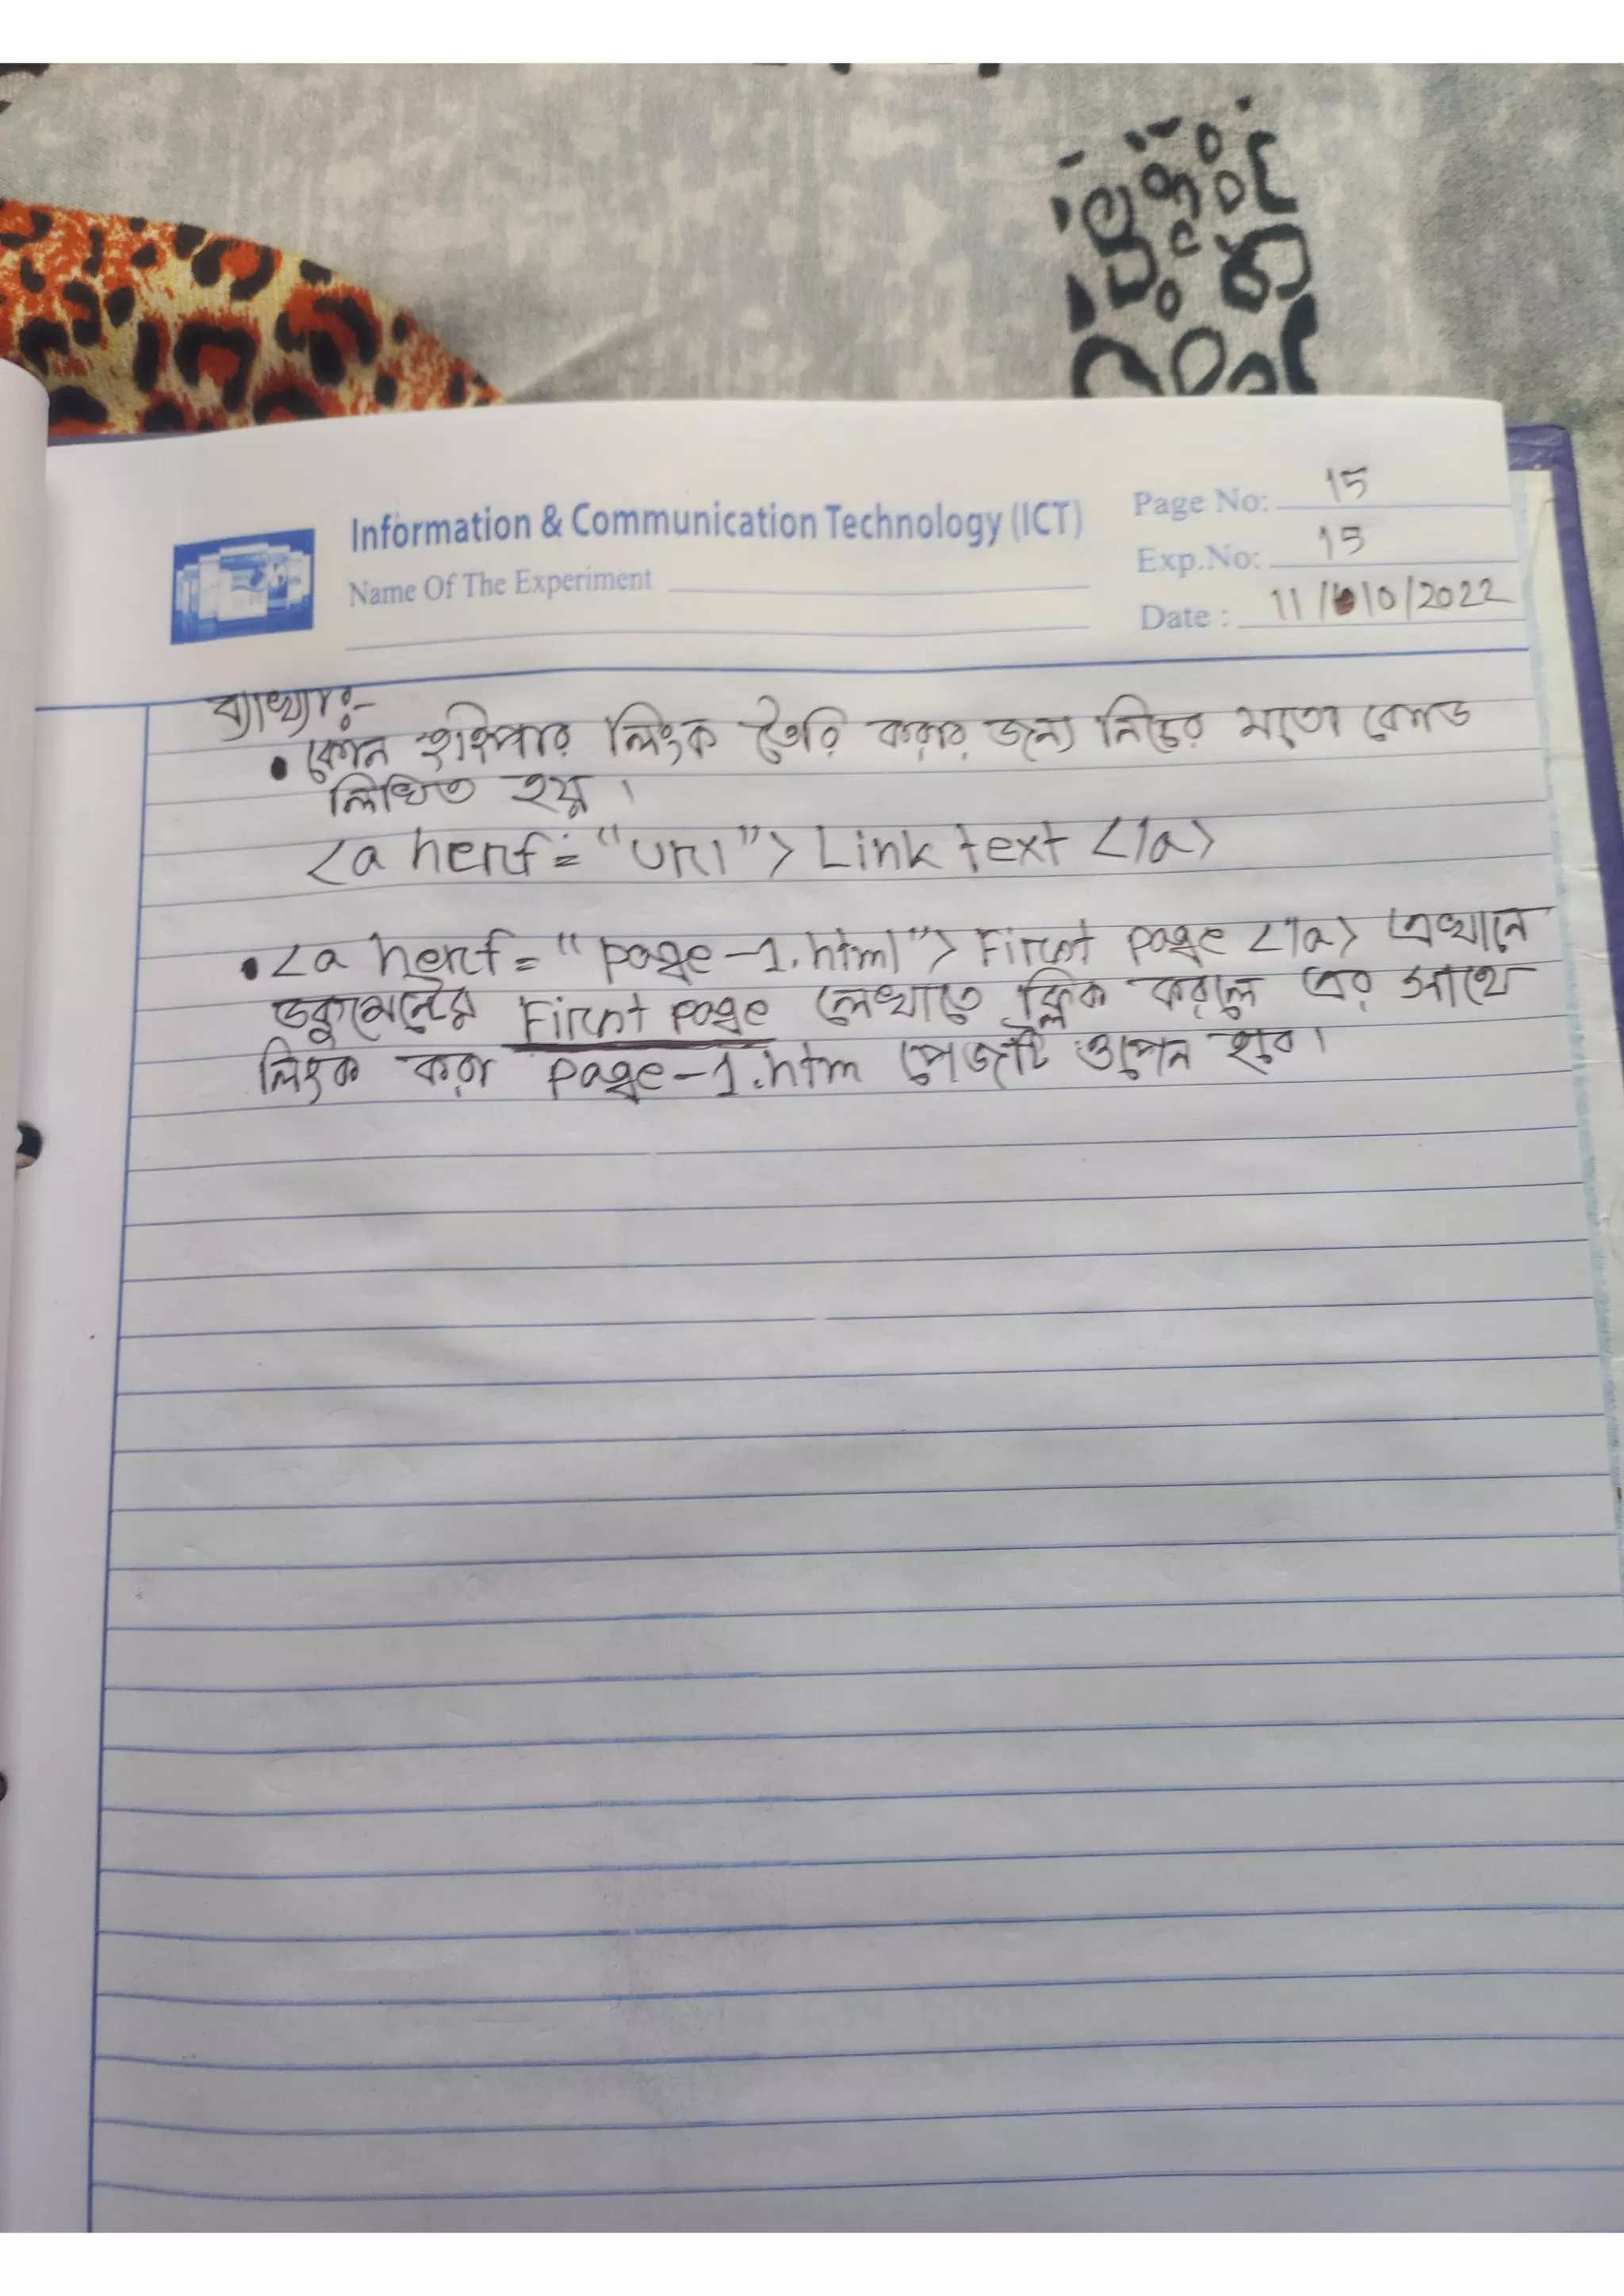 Information & Communication Technology (ICT)
Page No: 15
Name Of The Experiment
Exp.No: 15
Date : 11/10/2022
ব্যাখ্যাঃ-
• কোন হাইপার লিংক তৈরি করার জন্য নিচের মতো কোড
লিখিত হয়।
<a herf="url"> Link text </a>
• <a herf="page-1.html"> First page </a> এখানে
ডকুমেন্টের First page লেখাতে ক্লিক করলে এর সাথে
লিংক করা page-1.htm পেজটি ওপেন হবে।